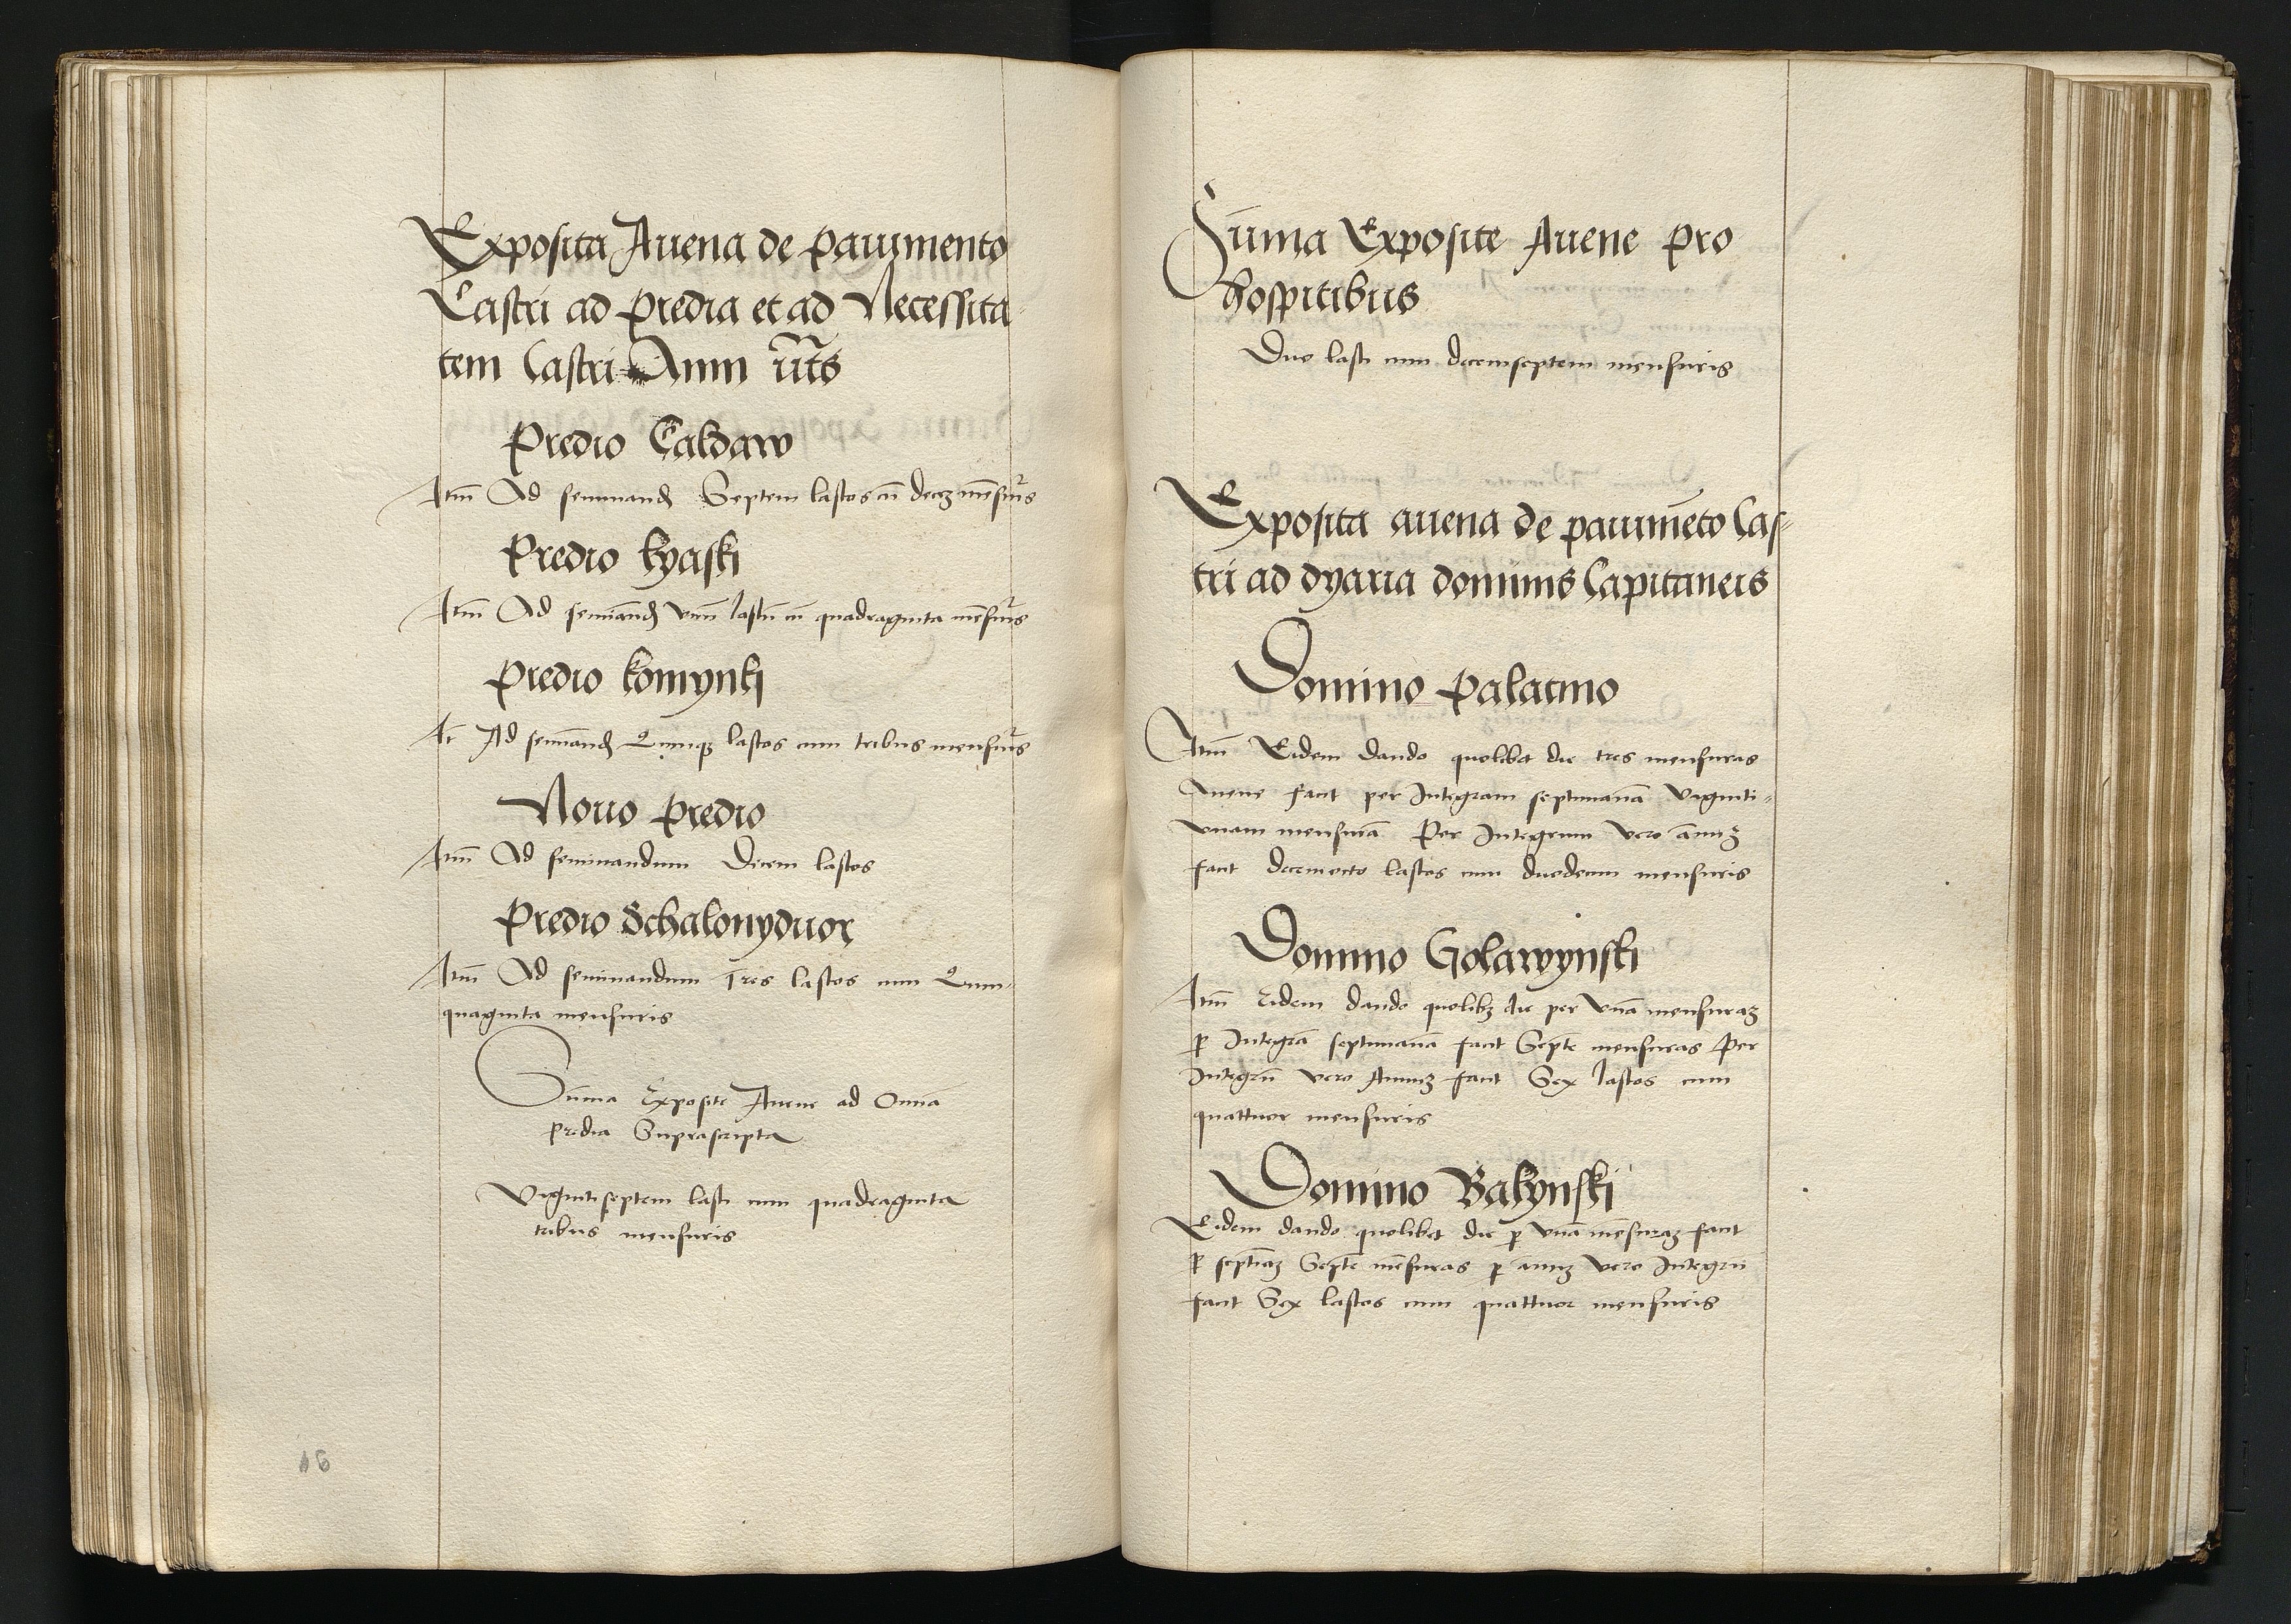 Exposita Auena de pauimento
Castri ad predia et ad Necessita-
tem Castri Anni ut͞s
Predio Caldaw
Itm̄ Ad seminand Septem lastos cū decez mēsuris
Predio kyaski
Itm̄ Ad semīand vnū lastū cū quadraginta mēsuris
Predio komynki
It Ad semīand Quinqz lastos cum tribus mensuris
Nouo predio
Itm̄ Ad seminandum Decem lastos
Predio Schalonyduor
Itm̄ Ad seminandum Tres lastos cum Quin-
quaginta mensuris
Sūma Exposite Auene ad Omnia
predia Suprascripta
Vigintiseptem lasti cum quadraginta
tribus mensuris
16
Sūma Exposite Auene pro
hospitibus
Duo lasti cum decemseptem mensuris
Exposita auena de pauimēto Cas-
tri ad dyaria dominis Capitaneis
Domino palatino
Itm̄ Eidem dando quolibet die tres mensuras
Auene facit per Integram septimanā viginti-
vnam mensurā Per Integrum vero annuz
facit decemocto lastos cum duodecim mensuris
Domino Golawynski
Itm̄ Eidem dando quolibz die per vnā mensuraz
p Integrā septimanā facit Septē mensuras Per
Integrū vero Annuz facit Sex lastos cum
quattuor mensuris
Domino Balynski
Eidem dando quolibet die p vnā mēsuraz facit
p septīaz Septē mēsuras p annuz vero Integrū
facit Sex lastos cum quattuor mensuris